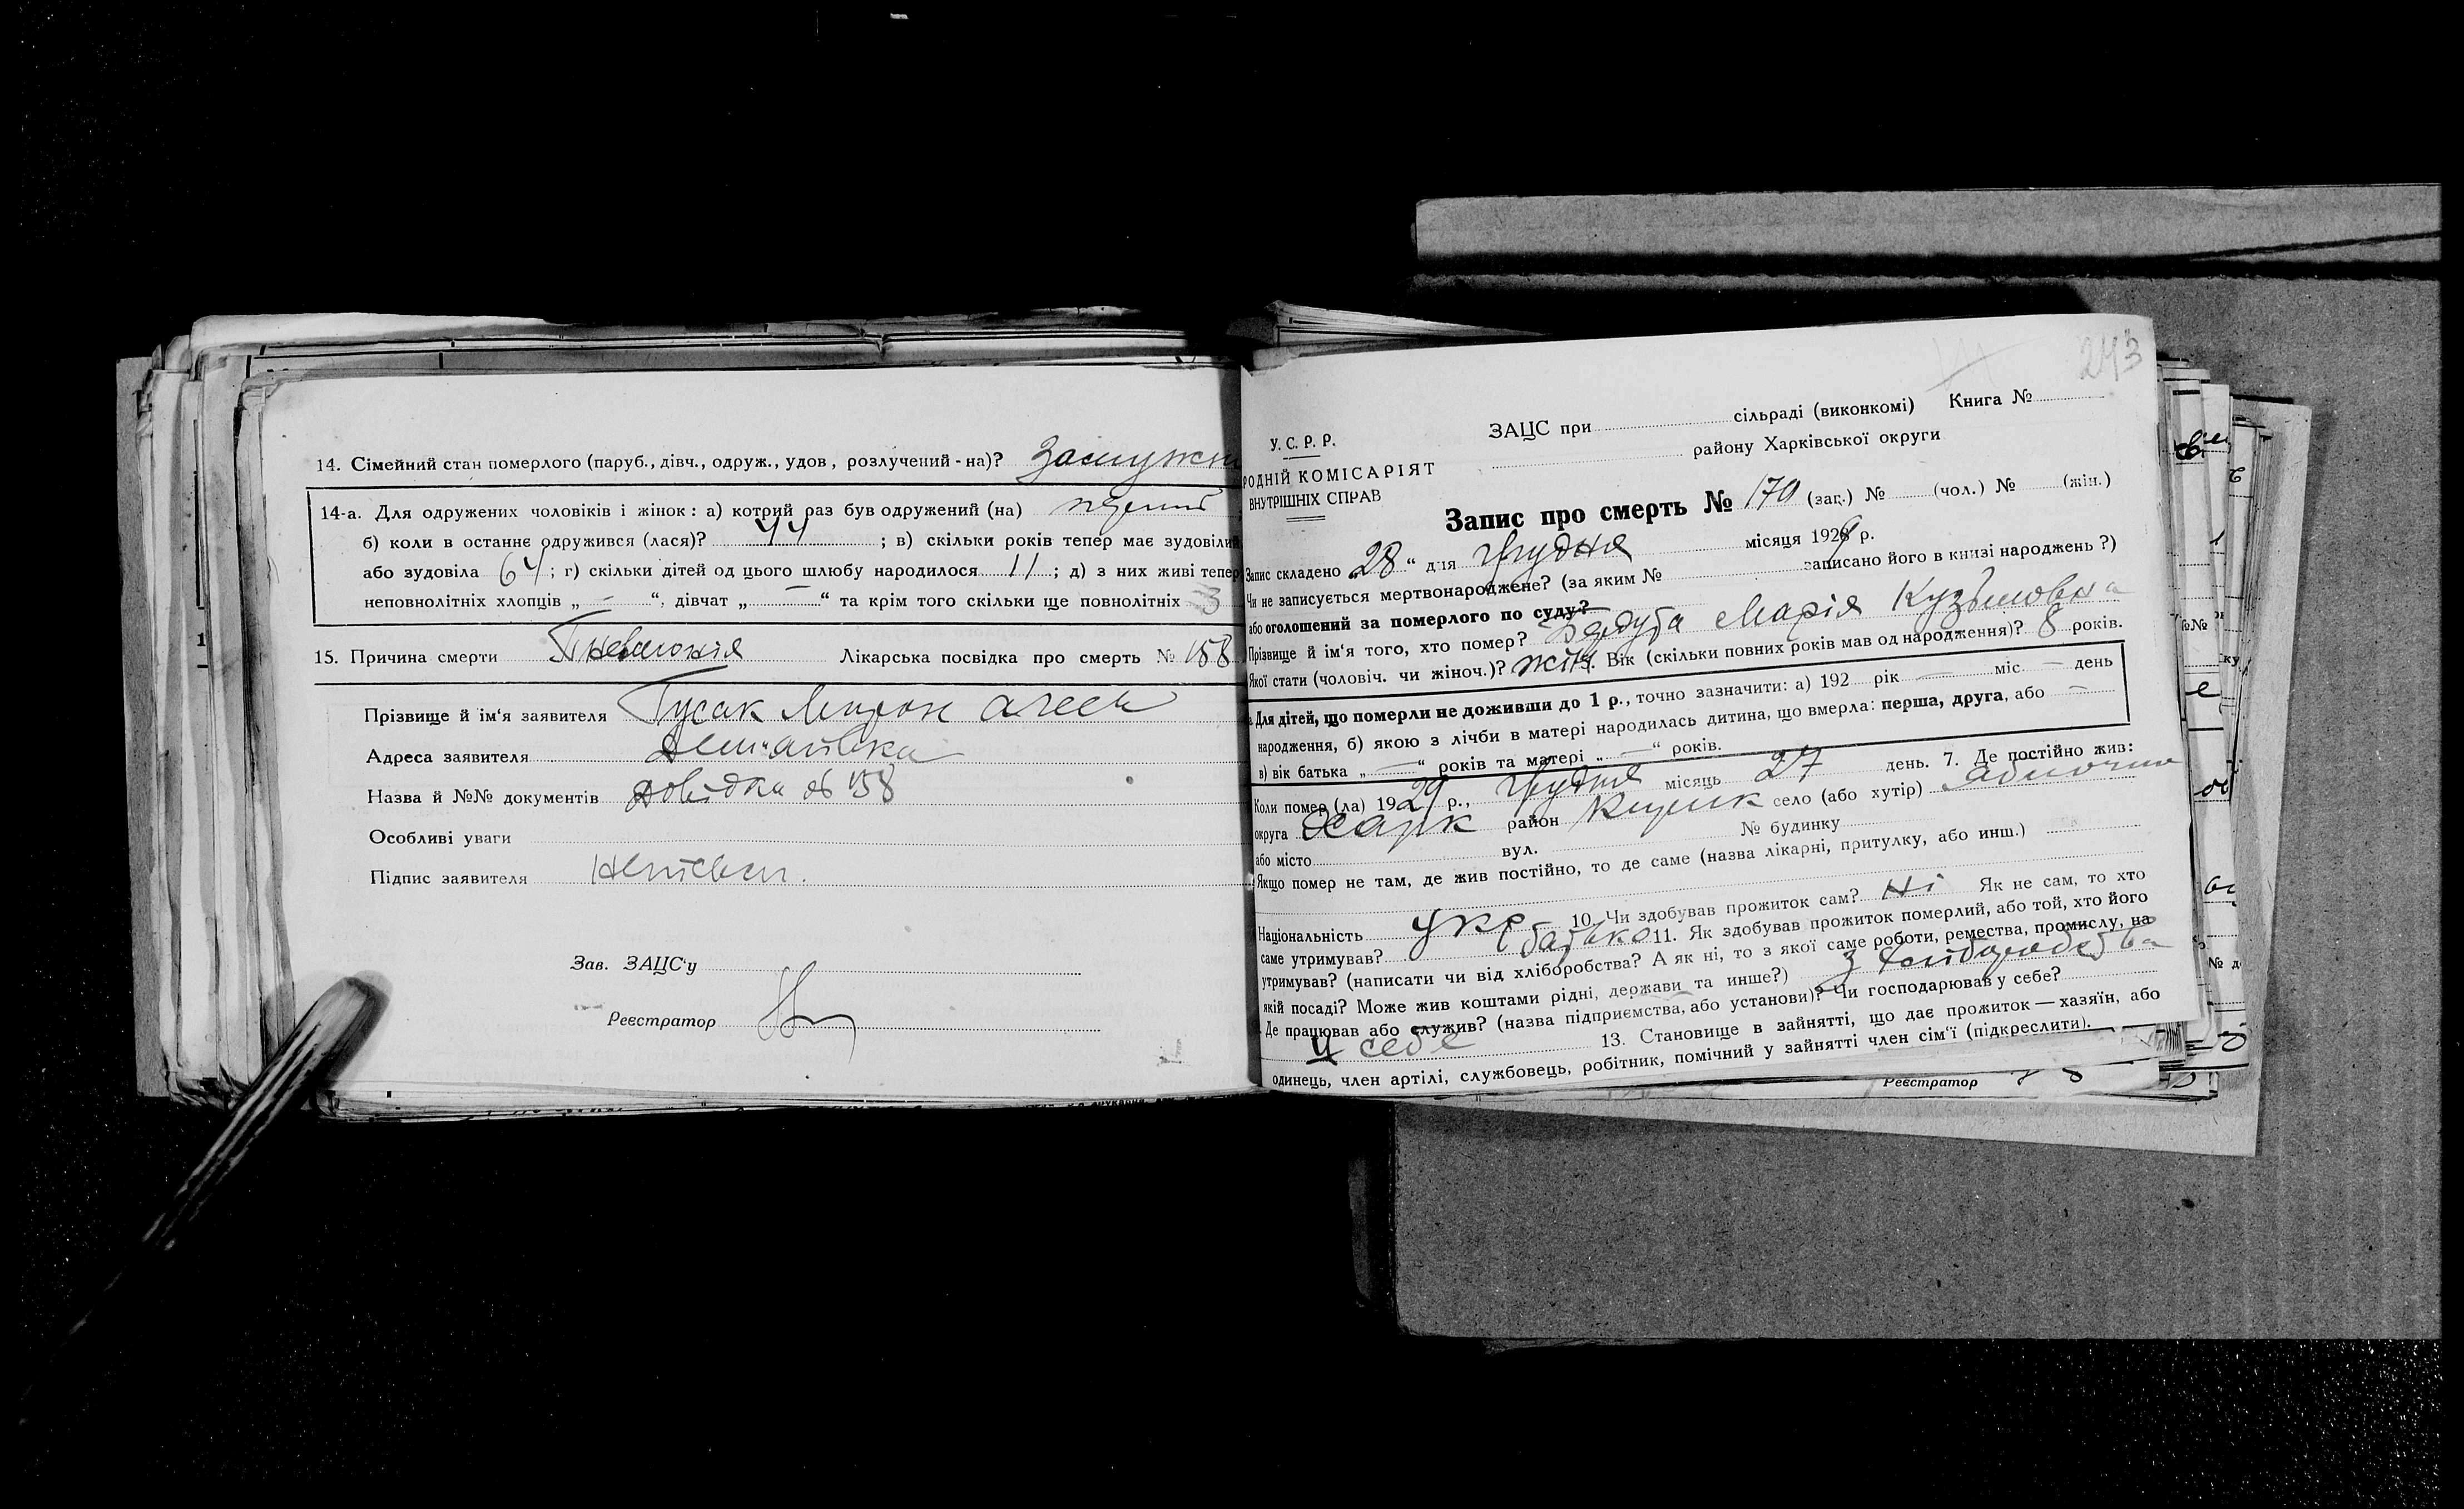 14. Сімейний стан померлого (паруб., дівч., одруж., удов, розлучений-на)? Замужн
14-а. Для одружених чоловіків і жінок: а) котрий раз був одружений (на) перший
б) коли в останнє одружився (лася)? 44 ; в) скільки років тепер має зудовілий
або зудовіла 64 ; г) скільки дітей од цього шлюбу народилося 11 ; д) з них живі тепер
неповнолітніх хлопців „ — “, дівчат „ — “ та крім того скільки ще повнолітніх 3
15. Причина смерти Пневмонія Лікарська посвідка про смерть № 158
Прізвище й ім‘я заявителя Гусак Мирон
Адреса заявителя
Назва й №№ документів Довідка № 158
Особливі уваги
Підпис заявителя неписьм.
Зав. ЗАЦС‘у
Реєстратор
243
У. С. Р. Р.
РОДНІЙ КОМІСАРІЯТ
ВНУТРІШНІХ СПРАВ
ЗАЦС при сільраді (виконкомі) Книга №
району Харківської округи
Запис про смерть № 170 (заг.) № (чол.) № (жін.)
Запис складено „28“ дня грудня місяця 1929 р.
Чи не записується мертвонароджене? (за яким № записано його в книзі народжень?)
або оголошений за померлого по суду?
Прізвище й ім‘я того, хто помер? Марія Кузьмовна
Якої стати (чоловіч. чи жіноч.)? жін. Вік (скільки повних років мав од народження)? 8 років.
Для дітей, що померли не доживши до 1 р., точно зазначити: а) 192 рік — міс. — день
народження, б) якою з лічби в матері народилась дитина, що вмерла: перша, друга, або —
в) вік батька „ — “ років та матері „ — “ років.
Коли помер (ла) 1929 р., грудня місяць 27 день. 7. Де постійно жив:
округа Харк район село (або хутір)
або місто вул. № будинку
Якщо помер не там, де жив постійно, то де саме (назва лікарні, притулку, або инш.)
Національність укр. 10. Чи здобував прожиток сам? Ні Як не сам, то хто
саме утримував? батько 11. Як здобував прожиток померлий, або той, хто його
утримував? (написати чи від хліборобства? А як ні, то з якої саме роботи, ремества, промислу, на
якій посаді? Може жив коштами рідні, держави та инше?) З хліборобства
Де працював або служив? (назва підприємства, або установи)? Чи господарював у себе?
у себе 13. Становище в зайнятті, що дає прожиток — хазяїн, або
одинець, член артілі, службовець, робітник, помічний у зайнятті член сім‘ї (підкреслити).
Реєстратор